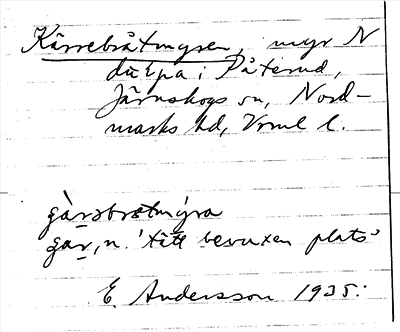 Kärrebråtmyren, myr N
du Epa i Påterud,
Järnskogs sn, Nord-
marks hd, Vrml l.
gàrəbrətmýra
gar, n. 'tätt bevuxen plats'
E. Andersson 1935.